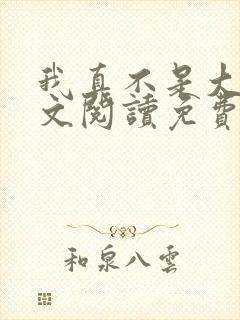 我真不是大
文閱讀免費
和泉八雲